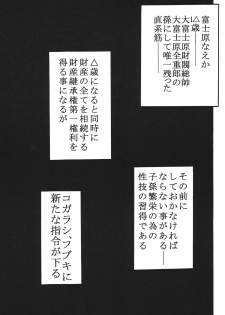 富士原なえか
△歳――
大富士原財閥総帥
大富士原全重郎の
孫にして唯一残った
直系筋――
△歳になると同時に
財産の全てを相続する
財産継承権第一権利を
得る事になるが
その前に
しておかなければ
ならない事がある――
子孫繁栄の為の
性技の習得である
コガラシ、フブキに
新たな指令が下る